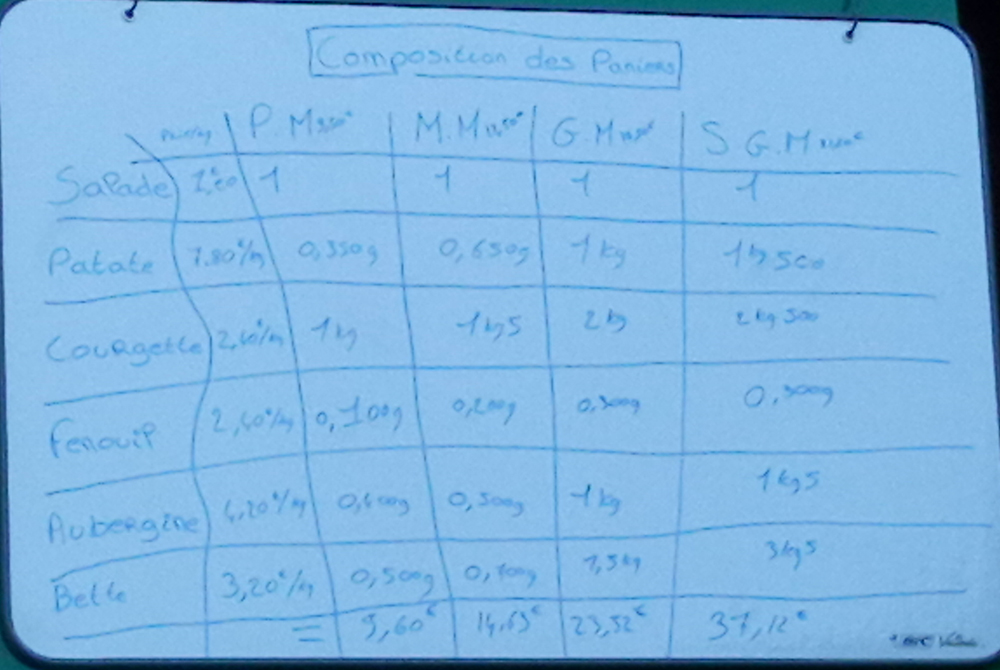 Composition des Paniers
P.M M.M G.M S G.M
Salade 1 1 1 1
Patate 1.80€/kg 0,350g 0,650g 1 kg 1kg 500
Courgette 2,40€/kg 1kg 1kg5 2kg 2kg 500
Fenouil 2,40€/kg 0,100g 0,200g 0,300g 0,500g
Aubergine 0,400g 0,500g 1kg 1kg5
Bette 3,20€/kg 0,500g 0,700g 1,5kg 3kg5
= 9,60€ 14,63€ 23,52€ 37,12€